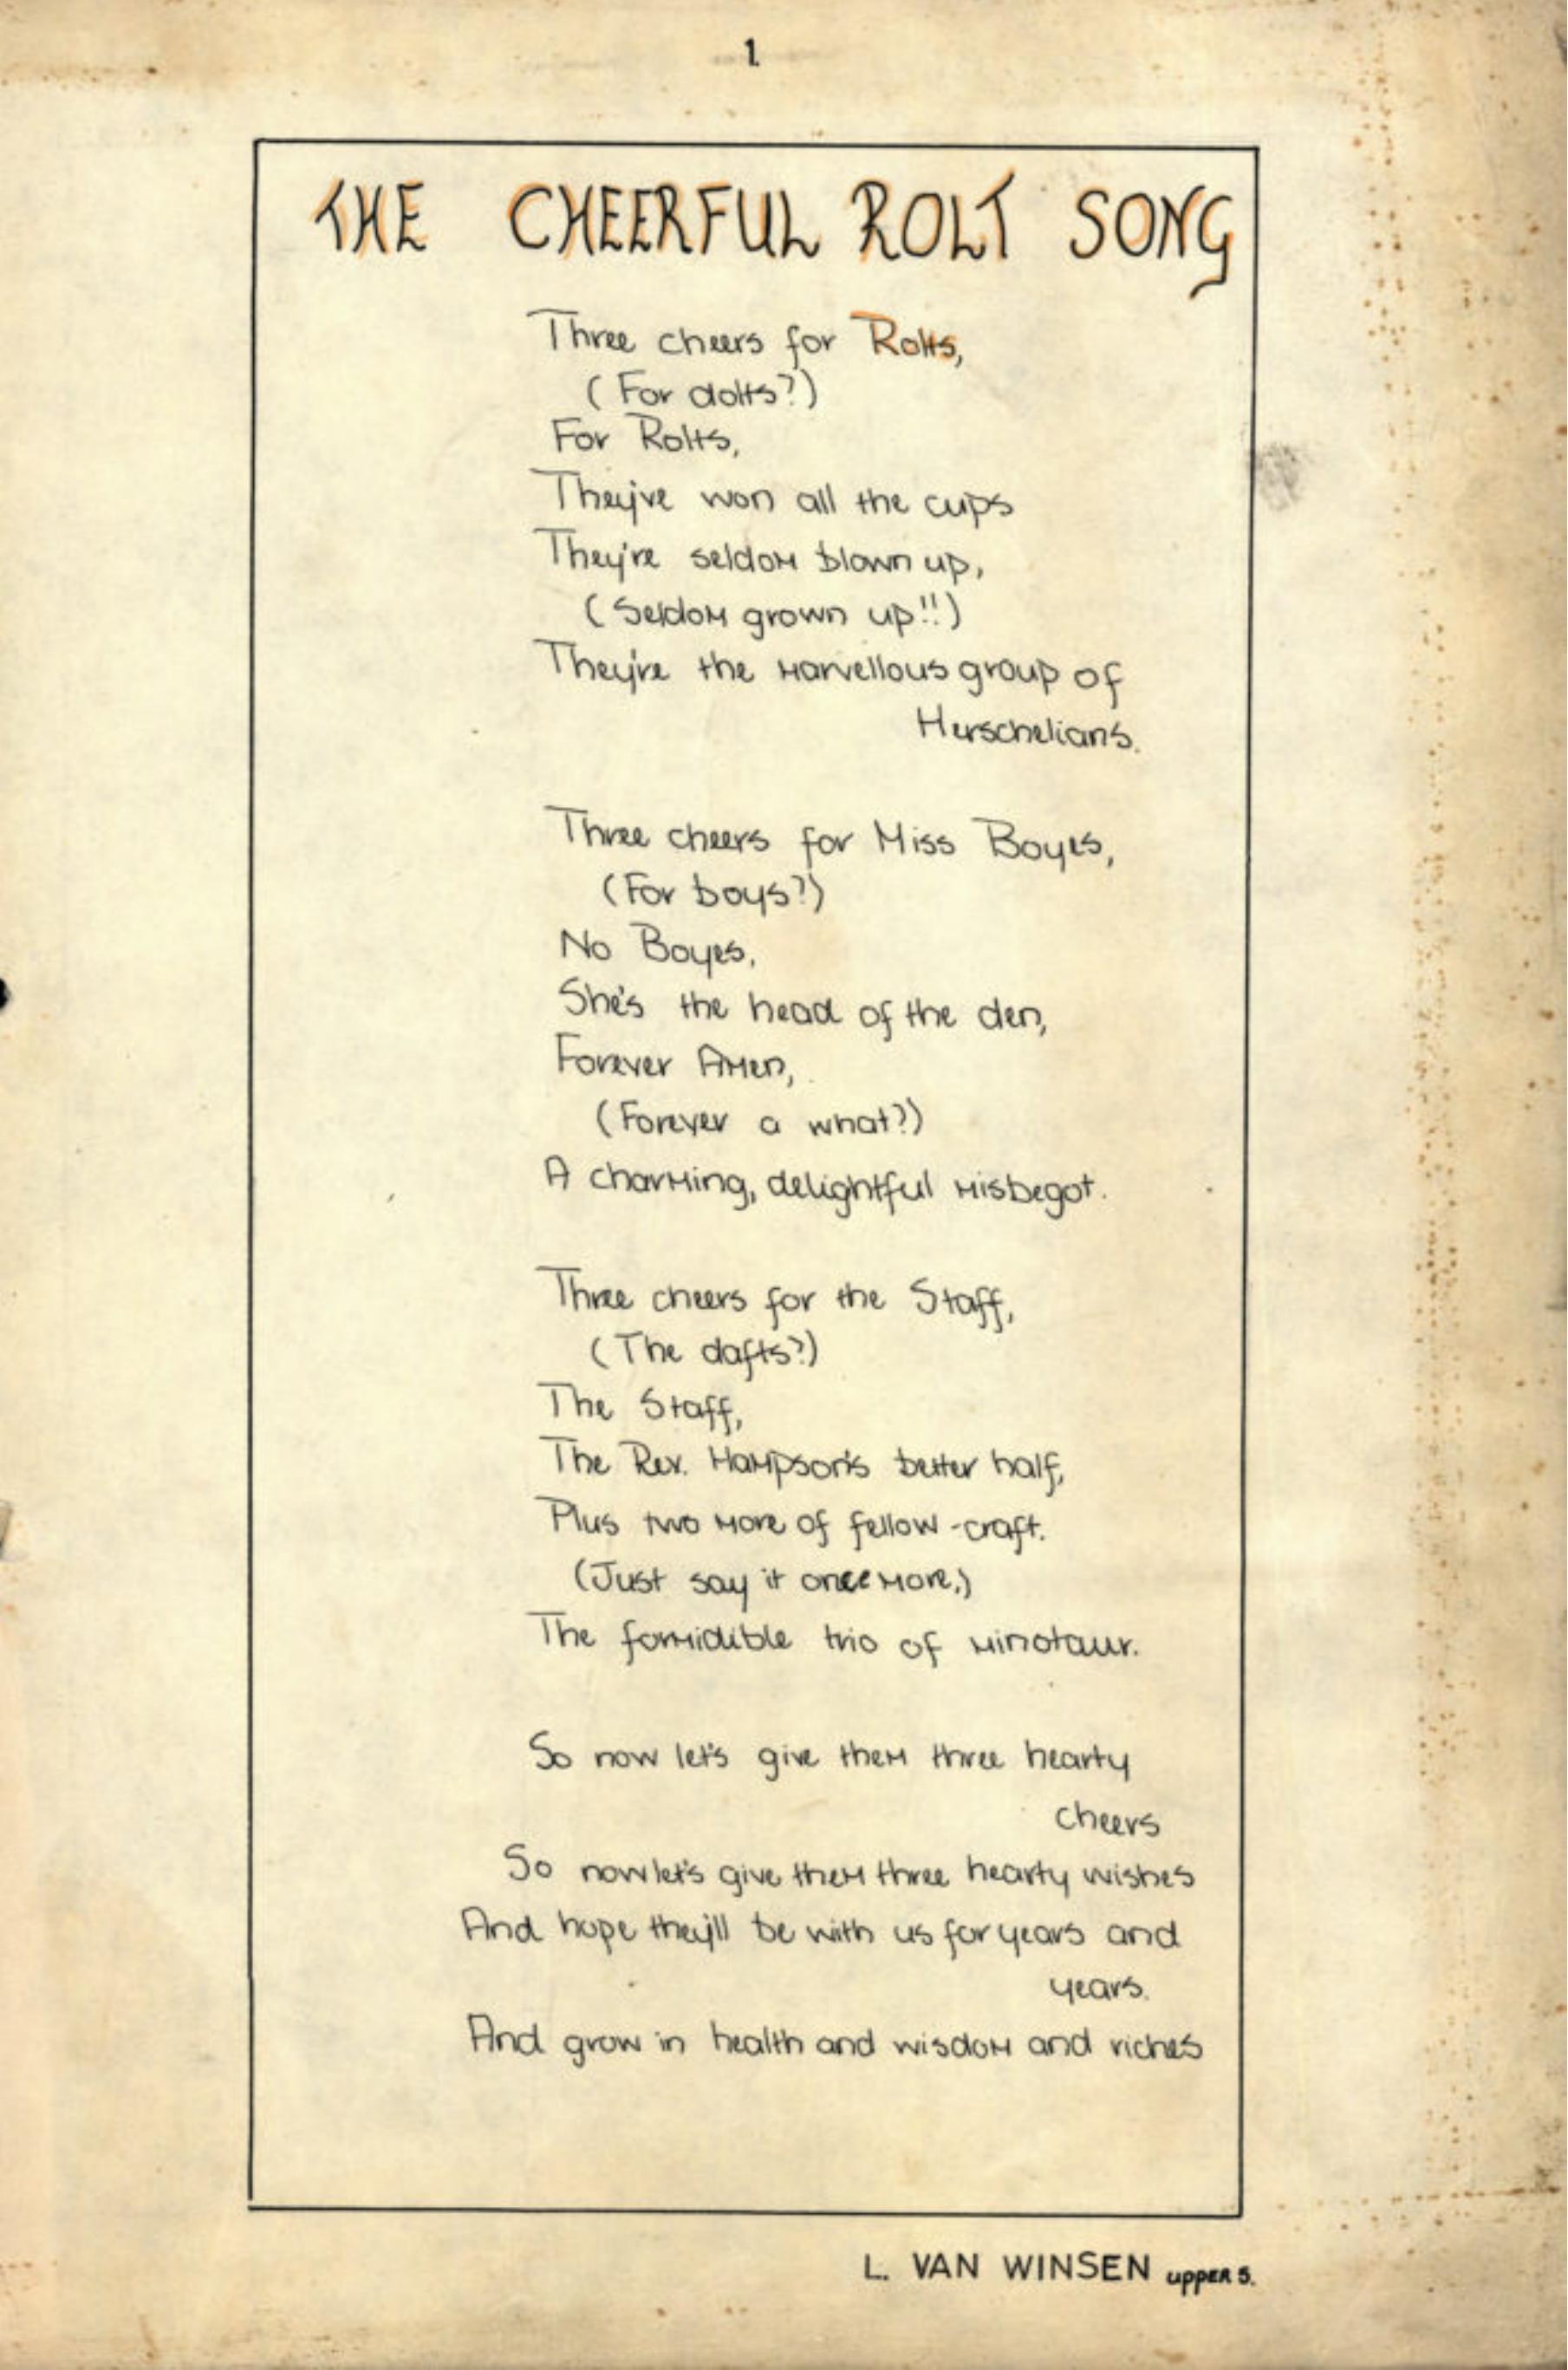 1
THE CHEERFUL ROLT SONG
Three cheers for Rolts,
(For dolts?)
For Rolts,
They've won all the cups
They're seldom blown up,
(Seldom grown up!!)
They're the marvellous group of
Herschelians.
Three cheers for Miss Boyes,
(For boys?)
No Boyes,
She's the head of the den,
Forever Amen,
(Forever a what?)
A charming, delightful misbegot.
Three cheers for the Staff,
(The dafts?)
The Staff,
The Rev. Hampson's better half,
Plus two more of fellow-craft.
(Just say it once more,)
The formidible trio of minotaur.
So now let's give them three hearty
cheers
So now let's give them three hearty wishes
And hope they'll be with us for years and
years.
And grow in health and wisdom and riches
L. VAN WINSEN UPPER 5.